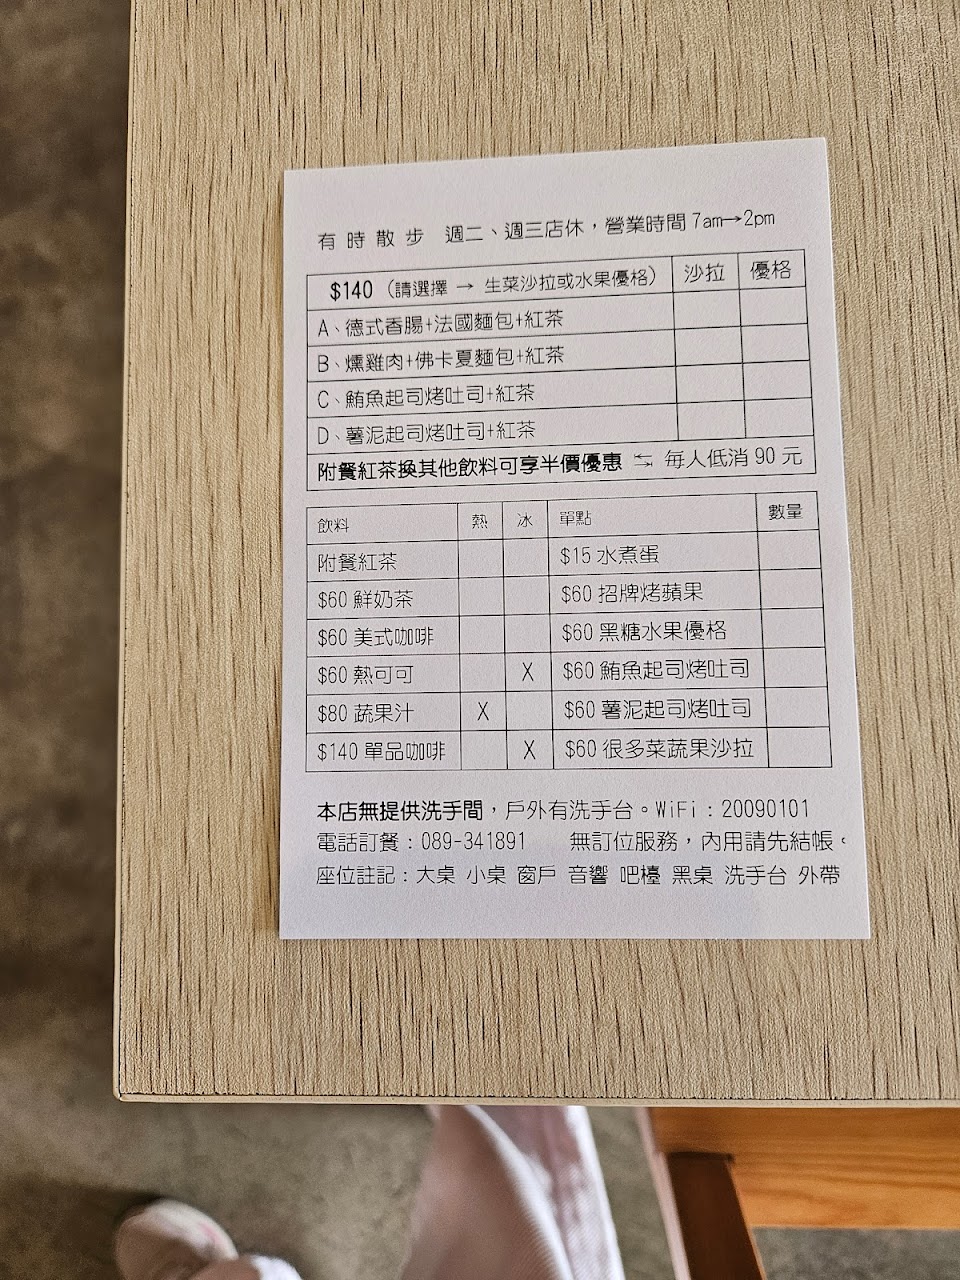 有時散步 週二、週三店休，營業時間 7am→2pm
$140（請選擇 → 生菜沙拉或水果優格） 沙拉 優格
A、德式香腸+法國麵包+紅茶
B、燻雞肉+佛卡夏麵包+紅茶
C、鮪魚起司烤吐司+紅茶
D、薯泥起司烤吐司+紅茶
附餐紅茶換其他飲料可享半價優惠 ⇆ 每人低消 90 元
飲料 熱 冰 單點 數量
附餐紅茶 $15 水煮蛋
$60 鮮奶茶 $60 招牌烤蘋果
$60 美式咖啡 $60 黑糖水果優格
$60 熱可可 X $60 鮪魚起司烤吐司
$80 蔬果汁 X $60 薯泥起司烤吐司
$140 單品咖啡 X $60 很多菜蔬果沙拉
本店無提供洗手間，戶外有洗手台。WiFi：20090101
電話訂餐：089-341891 無訂位服務，內用請先結帳。
座位註記：大桌 小桌 窗戶 音響 吧檯 黑桌 洗手台 外帶